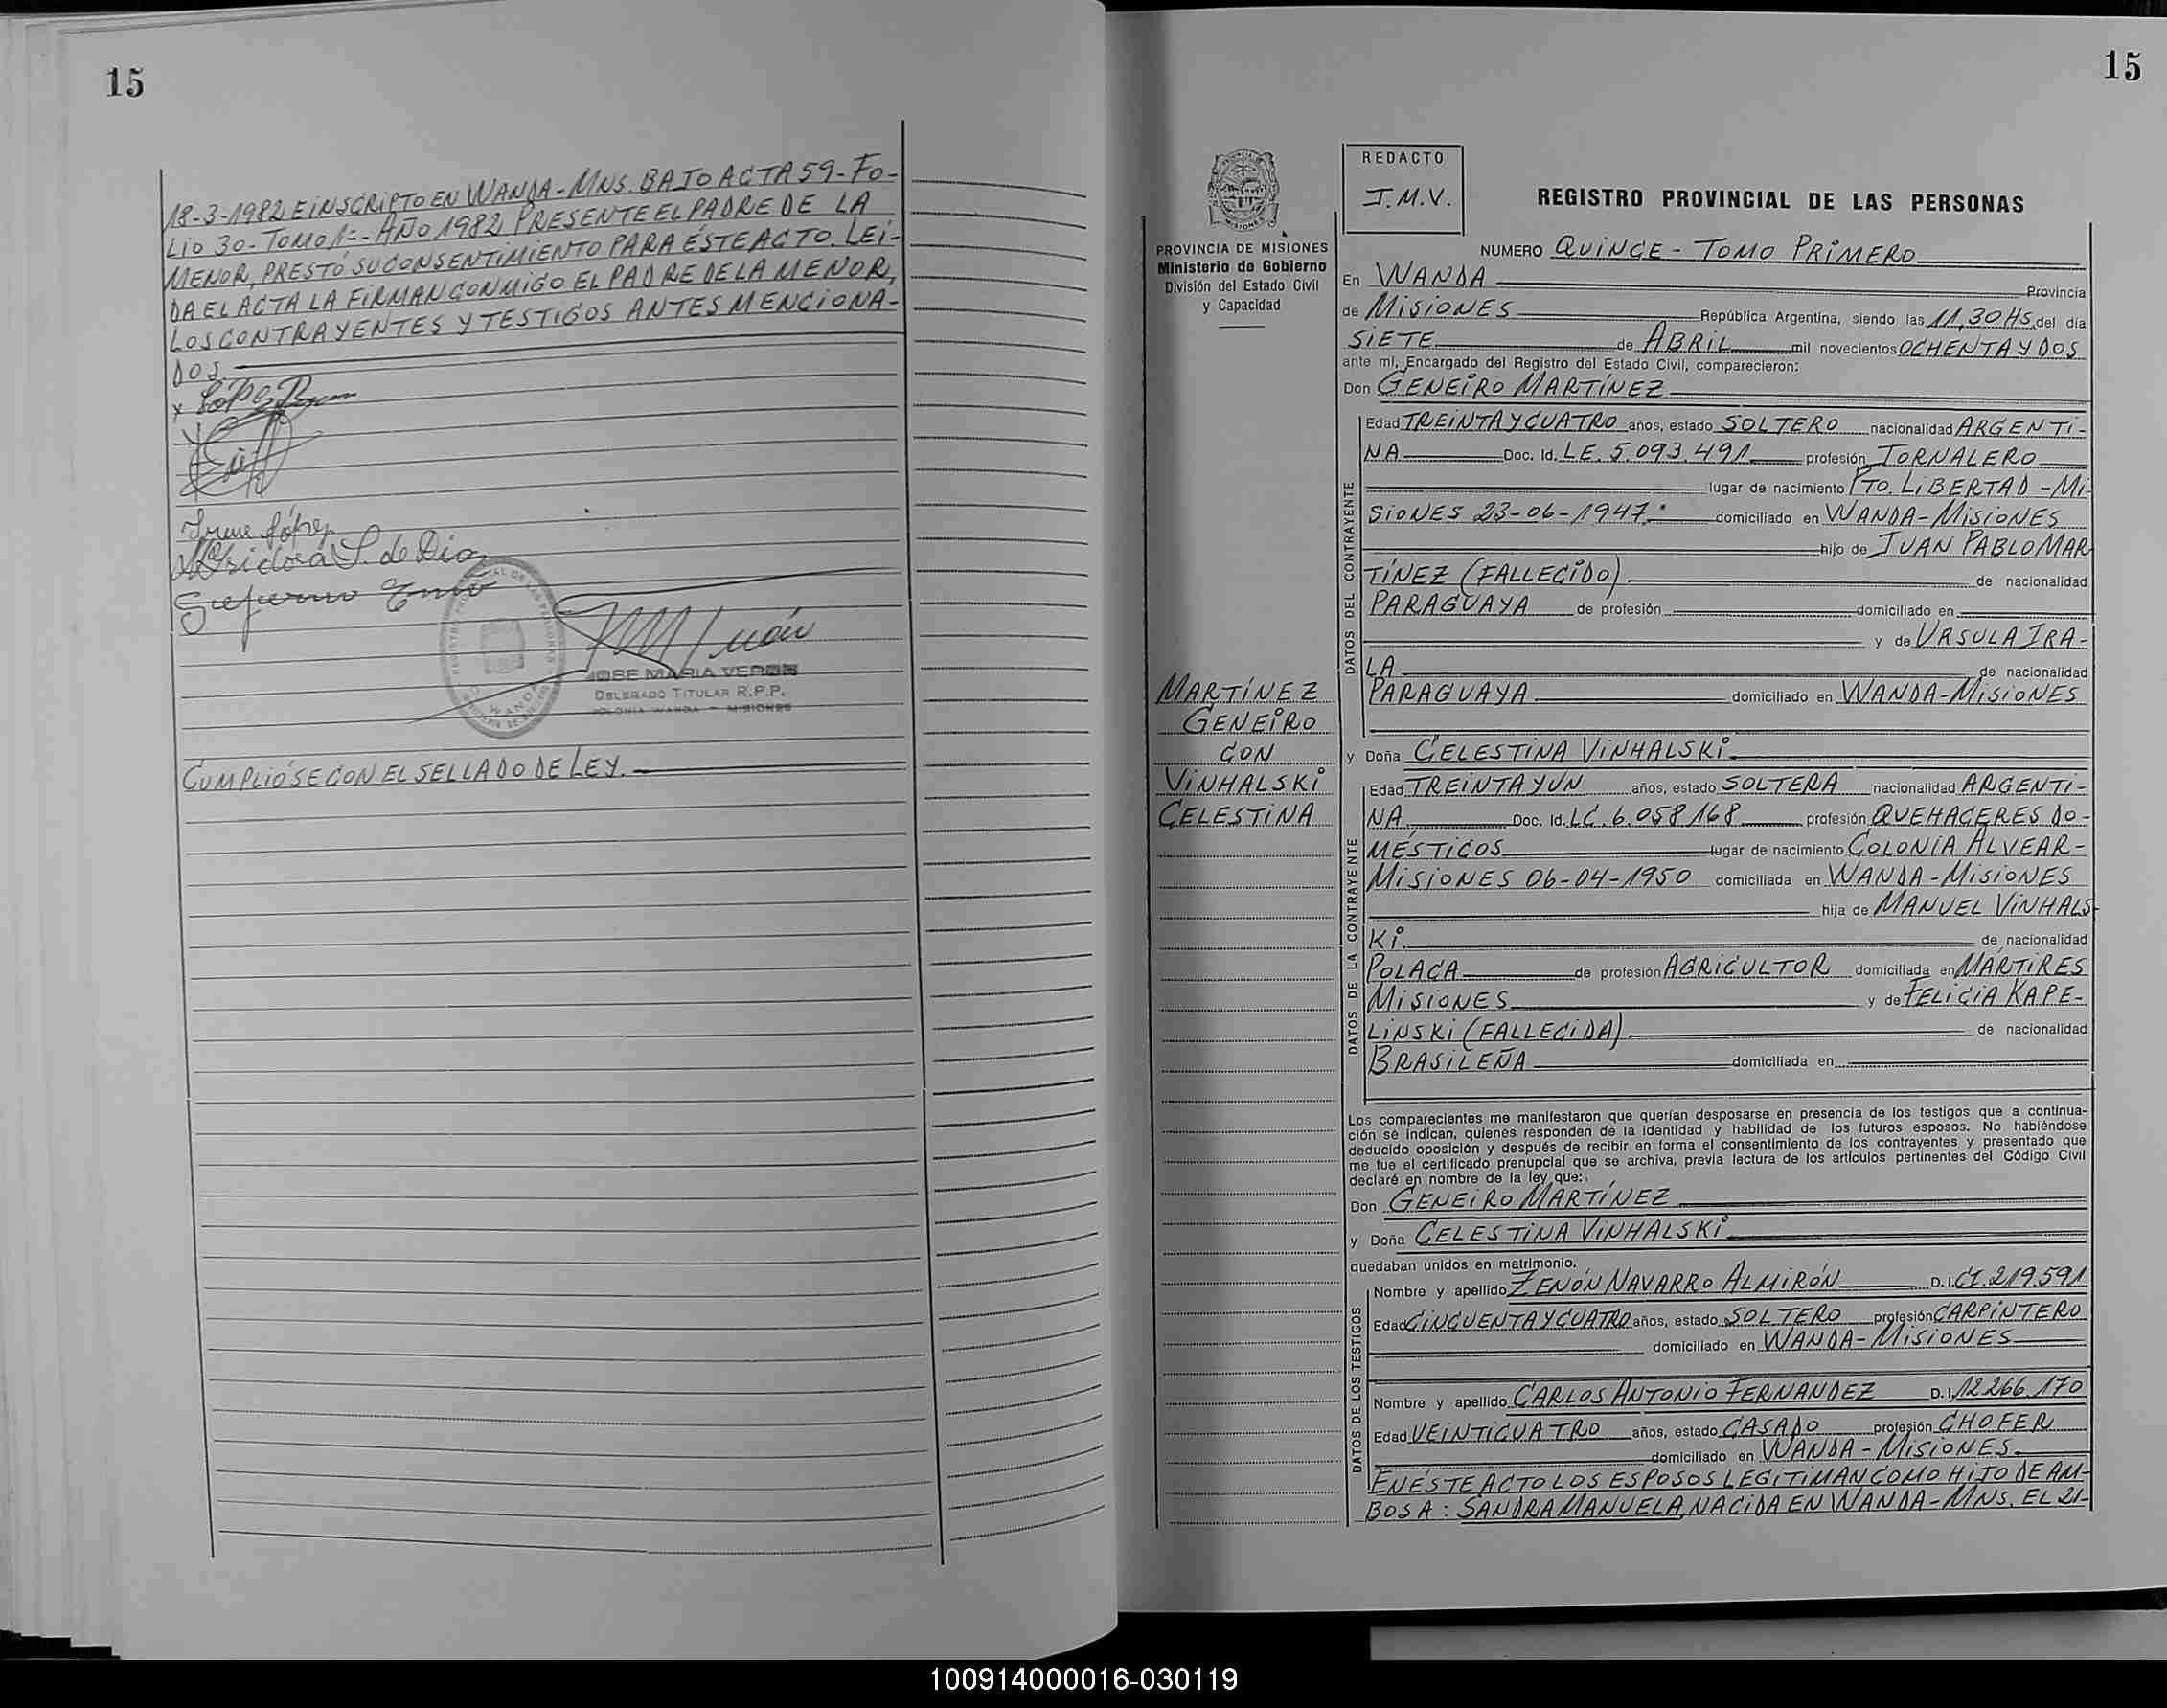 15
18-3-1982 E INSCRIPTO EN WANDA-MNS. BAJO ACTA 59-FO-
LIO 30-TOMO 1º-AÑO 1982, PRESENTE EL PADRE DE LA
MENOR, PRESTÓ SU CONSENTIMIENTO PARA ÉSTE ACTO. LEI-
DA EL ACTA LA FIRMAN CONMIGO EL PADRE DE LA MENOR,
LOS CONTRAYENTES Y TESTIGOS ANTES MENCIONA-
DOS
Irene López
Isidora S. de Dia
JOSE MARIA VERON
DELEGADO TITULAR R.P.P.
COLONIA WANDA - MISIONES
CUMPLIÓSE CON EL SELLADO DE LEY.
15
PROVINCIA DE MISIONES
Ministerio de Gobierno
División del Estado Civil
y Capacidad
REDACTO
J.M.V.
REGISTRO PROVINCIAL DE LAS PERSONAS
NUMERO QUINCE - TOMO PRIMERO
En WANDA Provincia
de MISIONES República Argentina, siendo las 11,30 HS. del día
SIETE de ABRIL mil novecientos OCHENTA Y DOS
ante mí, Encargado del Registro del Estado Civil, comparecieron:
Don GENEIRO MARTÍNEZ
DATOS DEL CONTRAYENTE
Edad TREINTA Y CUATRO años, estado SOLTERO nacionalidad ARGENTI-
NA Doc. Id. LE. 5.093.491 profesión JORNALERO
lugar de nacimiento PTO. LIBERTAD-MI-
SIONES 23-06-1947. domiciliado en WANDA-MISIONES
hijo de JUAN PABLO MAR
TÍNEZ (FALLECIDO) de nacionalidad
PARAGUAYA de profesión domiciliado en
y de URSULA IRA-
LA de nacionalidad
PARAGUAYA domiciliado en WANDA-MISIONES
MARTÍNEZ
GENEIRO
CON
VINHALSKI
CELESTINA
y Doña CELESTINA VINHALSKI
DATOS DE LA CONTRAYENTE
Edad TREINTA Y UN años, estado SOLTERA nacionalidad ARGENTI-
NA Doc. Id. LC. 6.058.168 profesión QUEHACERES DO-
MÉSTICOS lugar de nacimiento COLONIA ALVEAR-
MISIONES 06-04-1950 domiciliada en WANDA-MISIONES
hija de MANUEL VINHALS-
KI de nacionalidad
POLACA de profesión AGRICULTOR domiciliada en MÁRTIRES
MISIONES y de FELICIA KAPE-
LINSKI (FALLECIDA) de nacionalidad
BRASILEÑA domiciliada en
Los comparecientes me manifestaron que querían desposarse en presencia de los testigos que a continua-
ción se indican, quienes responden de la identidad y habilidad de los futuros esposos. No habiéndose
deducido oposición y después de recibir en forma el consentimiento de los contrayentes y presentado que
me fue el certificado prenupcial que se archiva, previa lectura de los artículos pertinentes del Código Civil
declaré en nombre de la ley que:
Don GENEIRO MARTÍNEZ
y Doña CELESTINA VINHALSKI
quedaban unidos en matrimonio.
DATOS DE LOS TESTIGOS
Nombre y apellido ZENÓN NAVARRO ALMIRÓN D. I. CI. 219.591
Edad CINCUENTA Y CUATRO años, estado SOLTERO profesión CARPINTERO
domiciliado en WANDA-MISIONES
Nombre y apellido CARLOS ANTONIO FERNANDEZ D. I. 12.266.170
Edad VEINTICUATRO años, estado CASADO profesión CHOFER
domiciliado en WANDA-MISIONES.
EN ÉSTE ACTO LOS ESPOSOS LEGITIMAN COMO HIJO DE AM-
BOS A: SANDRA MANUELA, NACIDA EN WANDA-MNS. EL 21-
100914000016-030119